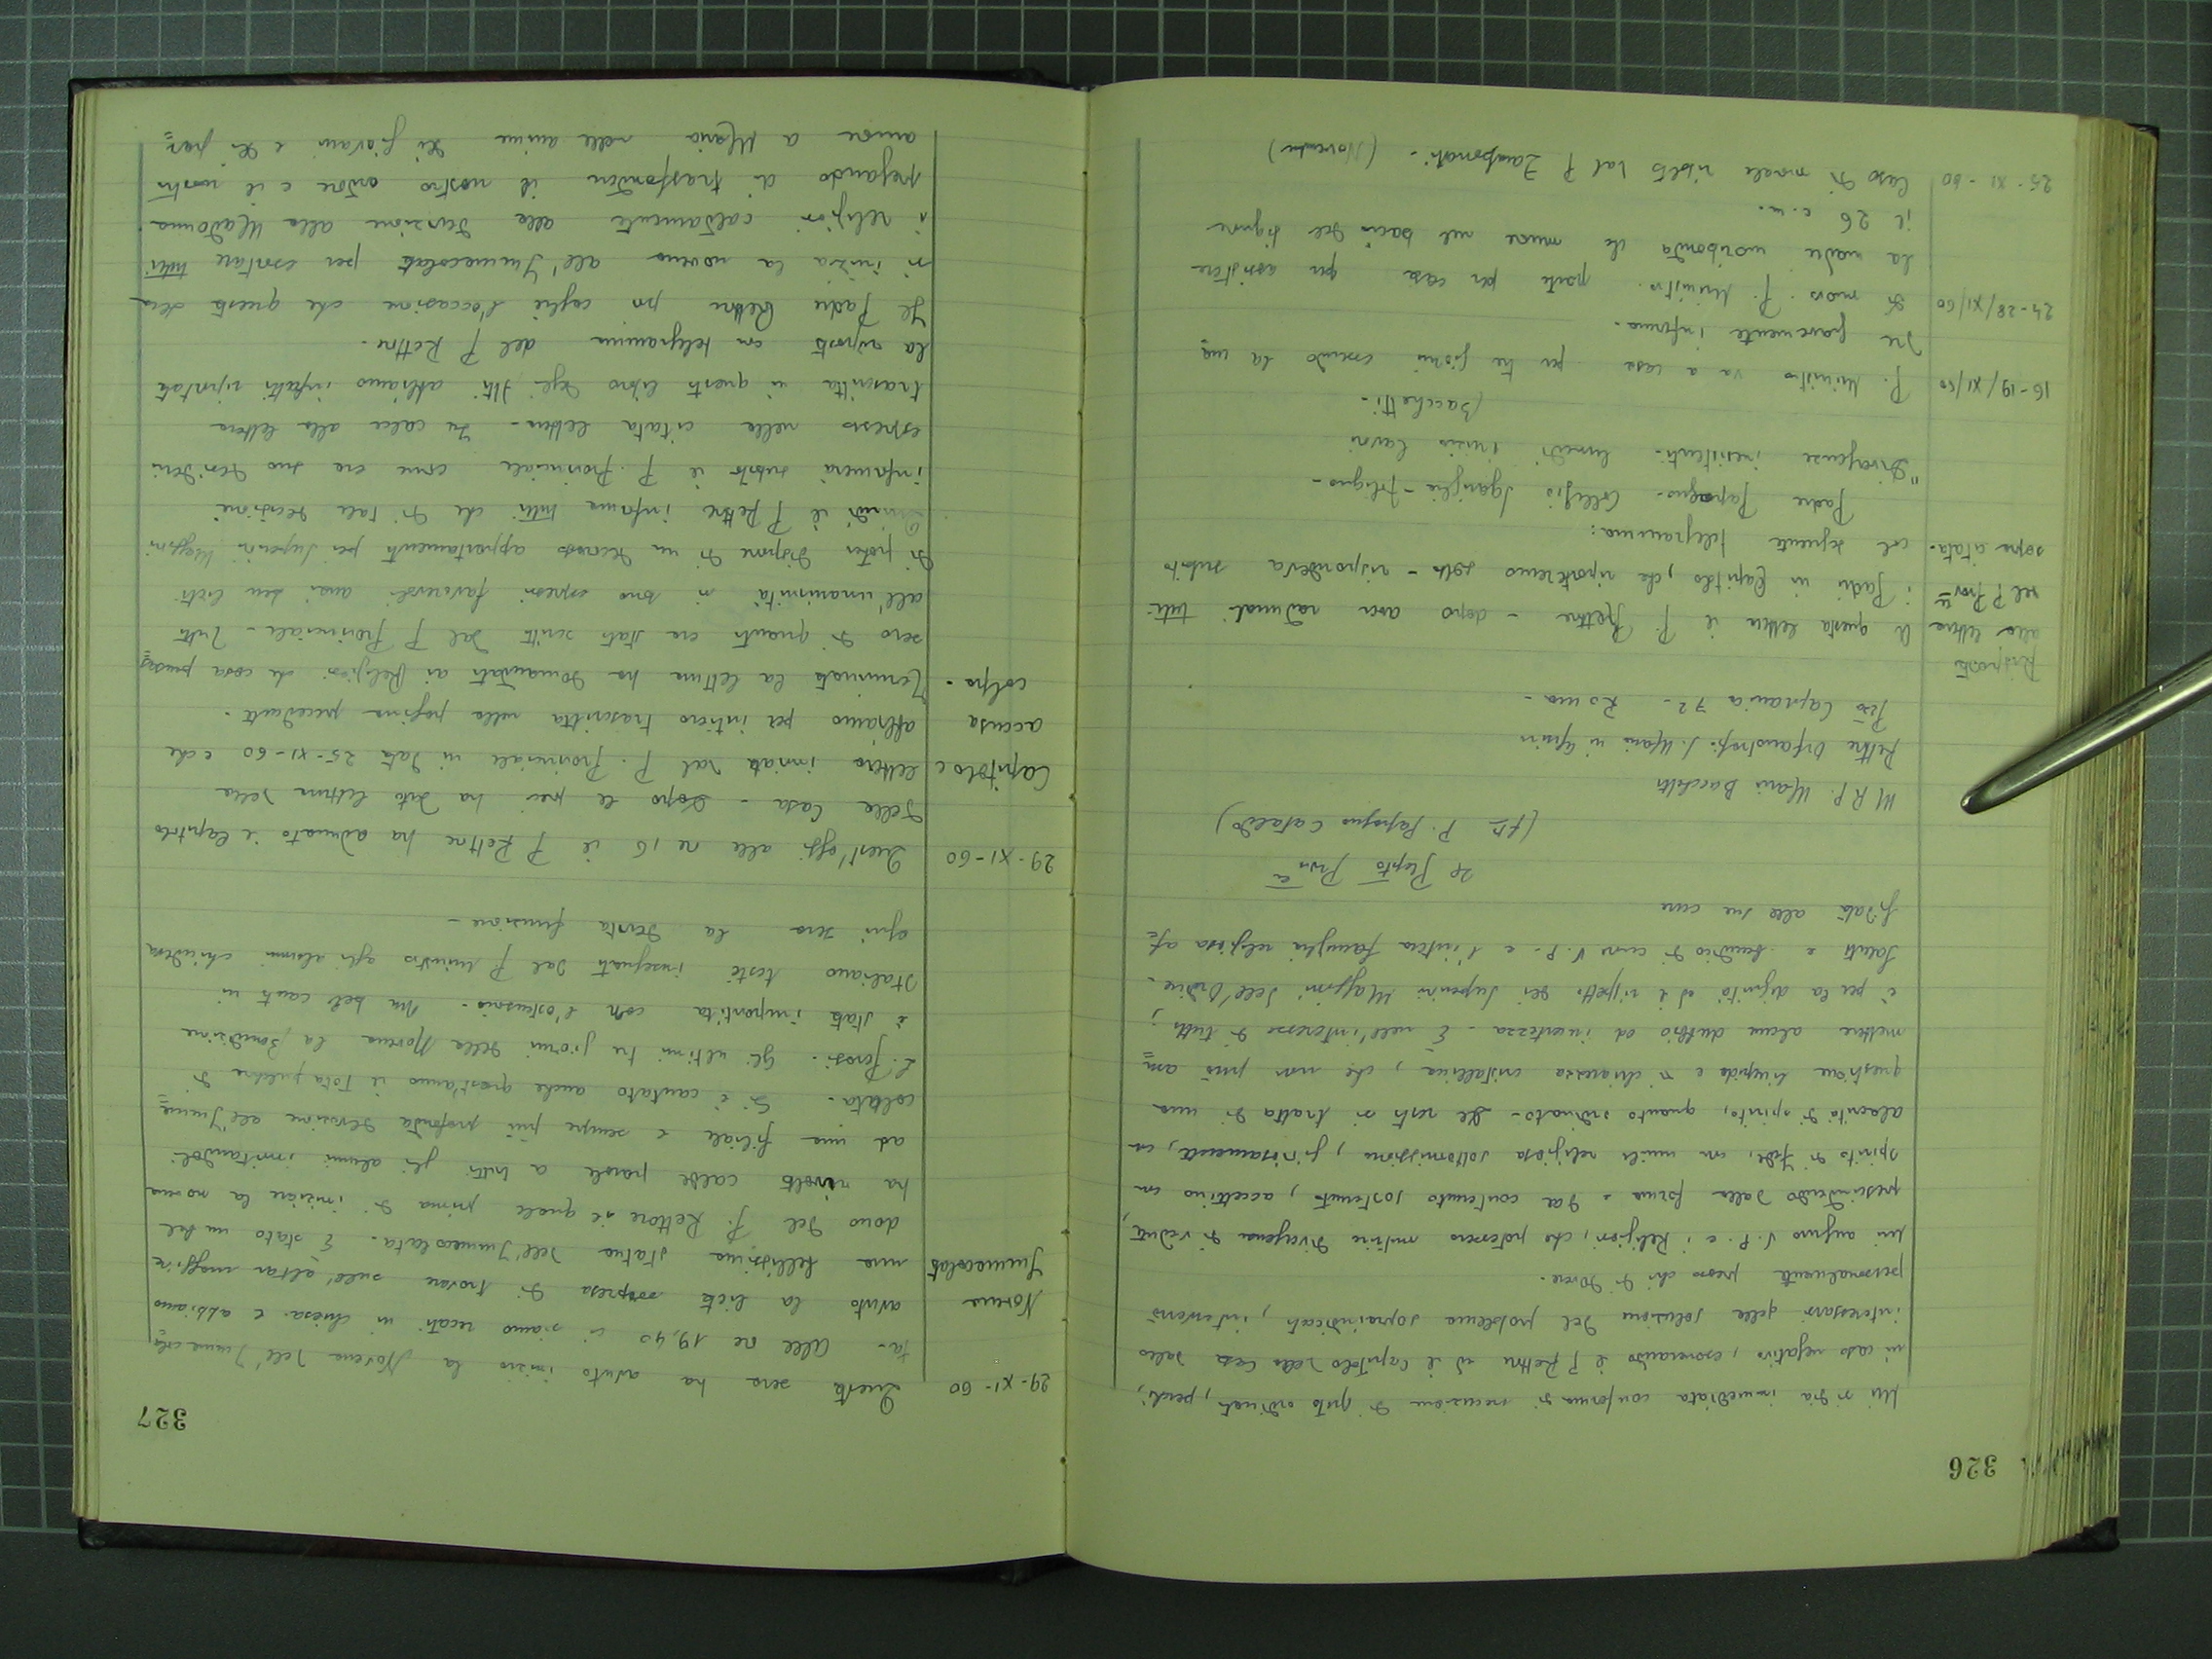 326
Mi si dia immediata conferma di esecuzione di q.to ordinato, perché,
in caso negativo, esonerando il P. Rettore ed il Capitolo della Casa dallo
interessarsi della soluzione del problema sopraindicato, interverrò
personalmente presso chi di dovere.
Mi auguro V. P. e i Religiosi, che potessero nutrire divergenza di vedute,
prescindendo dalla forma e dal contenuto sostenuto, accettino con
spirito di fede, con umile religiosa sottomissione, gioiosamente, con
alacrità di spirito, quanto ordinato. Del resto si tratta di una
questione limpida e di chiarezza cristallina, che non può am=
mettere alcun dubbio od incertezza. È nell'interesse di tutti,
è per la dignità ed il rispetto dei Superiori Maggiori dell'Ordine.
Saluti e benedico di cuore V. P. e l'intera famiglia religiosa af=
fidata alle sue cure
Il Prep.to Prov.le
(f.to P. Papagno Cataldo)
M R P. Mario Bacchetti
Rettore Orfanotrof. S. Maria in Aquiro
P.za Capranica 72 - Roma -
Risposta
alla lettera
del P. Prov.le
sopra citata.
A questa lettera il P. Rettore - dopo aver radunati tutti
i Padri in Capitolo, che riporteremo sotto - rispondeva subito
col seguente telegramma:
Padre Papagno - Collegio Sgariglia - Foligno -
"Divergenze inesistenti. lunedì inizio lavori
Bacchetti -
16-19/XI/60 P. Ministro va a casa per tre giorni essendo la ma=
dre gravemente inferma.
24-28/XI/60 Di nuovo P. Ministro parte per casa per assistere
la madre moribonda che muore nel bacio del Signore
il 26 c.m.
25-XI-60 Caso di morale risolto dal P. Zamponati. (Novembre)
327
29-XI-60 Questa sera ha avuto inizio la Novena dell'Immacola=
ta. Alle ore 19,40 ci siamo recati in chiesa e abbiamo
Novena avuto la lieta sorpresa di trovare sull'altar maggiore
Immacolata una bellissima statua dell'Immacolata. È stato un bel
dono del P. Rettore il quale prima di iniziare la novena
ha rivolto calde parole a tutti gli alunni invitandoli
ad una filiale e sempre più profonda devozione all'Imma=
colata. Si è cantato anche quest'anno il Tota pulchra di
L. Perosi. Gli ultimi tre giorni della Novena la benedizione
è stata impartita con l'ostensorio. Un bel canto in
Italiano testé insegnato dal P. Ministro agli alunni chiudeva
ogni sera la devota funzione -
29-XI-60 Quest'oggi alle ore 16 il P. Rettore ha adunato il Capitolo
della Casa. Dopo le preci ha dato lettura della
Capitolo e lettera inviata dal P. Provinciale in data 25-XI-60 e che
accusa abbiamo per intero trascritta nella pagina precedente.
colpa. Terminata la lettura ha domandato ai Religiosi che cosa pensas=
sero di quanto era stato scritto dal P. Provinciale. Tutti
all'unanimità si sono espressi favorevoli anzi ben lieti
di poter disporre di un decoroso appartamento per Superiori Maggiori
Quindi il P. Rettore informa tutti che di tale decisione
informerà subito il P. Provinciale come era suo desiderio
espresso nella citata lettera. In calce alla lettera
trascritta in questo libro degli Atti abbiamo infatti riportata
la risposta con telegramma del P. Rettore.
Il Padre Rettore poi coglie l'occasione che questa sera
si inizia la novena all'Immacolata per esortare tutti
i religiosi caldamente alla devozione alla Madonna
pregando di trasfondere il nostro ardore e il nostro
amore a Maria nelle anime dei giovani e dei par=